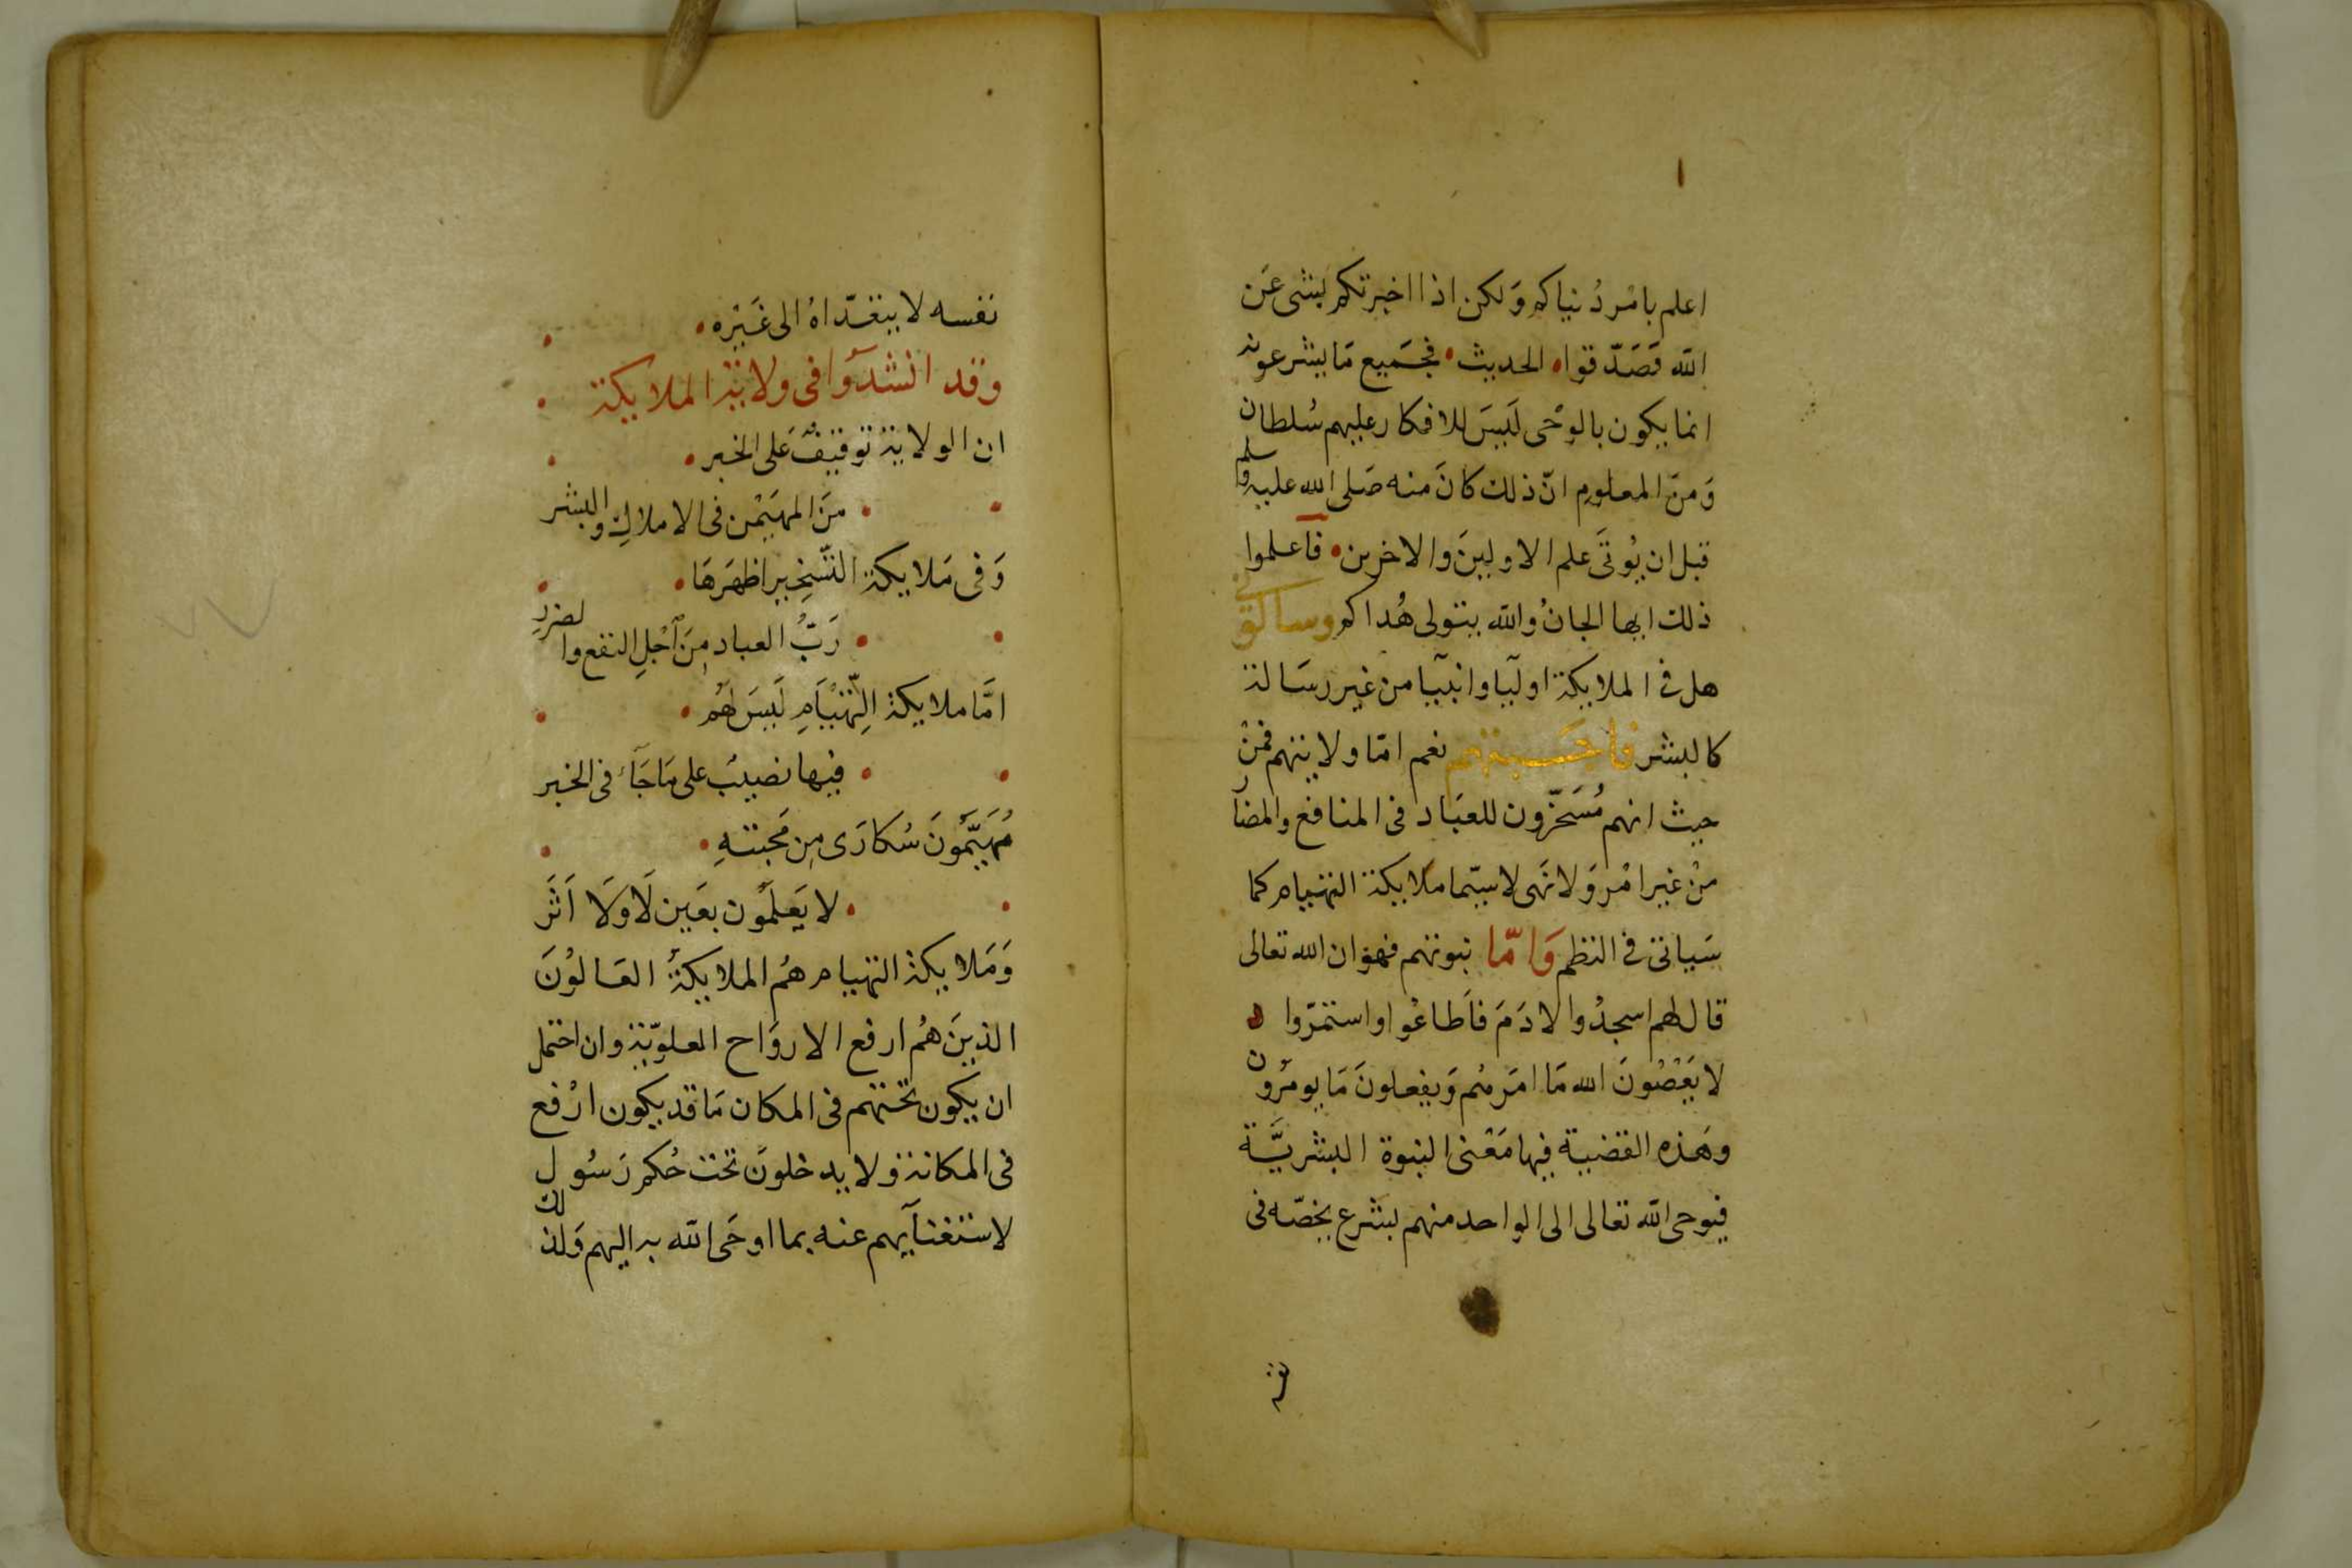 اعلم بامْر دُنياكم وَلكن اذا اخبرتكم بشى عَن
الله فَصَدّقوا • الحديث • فجَميع مَا يشرعونه
انما يكون بالوَحى لَيسَ للافكار عليهم سُلطان
وَمنَ المعلوم انّ ذلك كانَ منه صَلى الله عليه وسلم
قبل ان يُوتَى علم الاولينَ والاخرين • فاعلموا
ذلك ايها الجانُ والله يتولى هُداكم وسالونى
هل فى الملايكة اوليآ وانبيآ من غير رسَالة
كالبشر فاجَبتهم نعم امّا ولايتهم فمنْ
حيث انهم مُسَخّرون للعبَاد فى المنافع والمضار
منْ غير امْر وَلا نهَى لا سيّما ملايكة التهيام كما
سَياتى فى النظم وَامّا نبوتهم فهوَ ان الله تعالى
قال لهم اسجدُوا لادَمَ فاَطاعُوا واستمرّوا ه
لا يَعْصُونَ الله مَا امَرهُم وَيفعلونَ مَا يومَرُون
وهَذه القضية فيها مَعْنى النبوة البشريَّة
فيوحى الله تعالى الى الواحد منهم بشرع يخصّه فى
نفسه لا يتعدّاهُ الى غَيْره •
وقد انشدُوا فى ولاية الملايكة
ان الولايةَ توقيفٌ عَلى الخبر •
• منَ المهَيْمن فى الاملاكِ والبشر
وَفى مَلايكة التّسْخِير اظهَرهَا •
• رَبُّ العباد مِنَ اَجْلِ النفع والضررِ
امَّا ملايكة التّهْيَامِ لَيسَ لهُم •
• فيها نصيبٌ على مَا جَآء فى الخبر
مُهَيَّمُونَ سُكارَى مِن مَحبتهِ •
• لا يَعلَمُون بعَين لَا وَلَا اَثَر
وَمَلايكة التهيام هُم الملايكةُ العَالوُنَ
الذينَ هُم ارفع الارواح العلويّة وان احتمل
ان يكون تحتهم فى المكان مَا قد يكون ارْفع
فى المكانة ولا يدخلونَ تحت حُكم رَسُول
لاستغنآيهم عنه بما اوحَى الله به اليهم وَلذلك